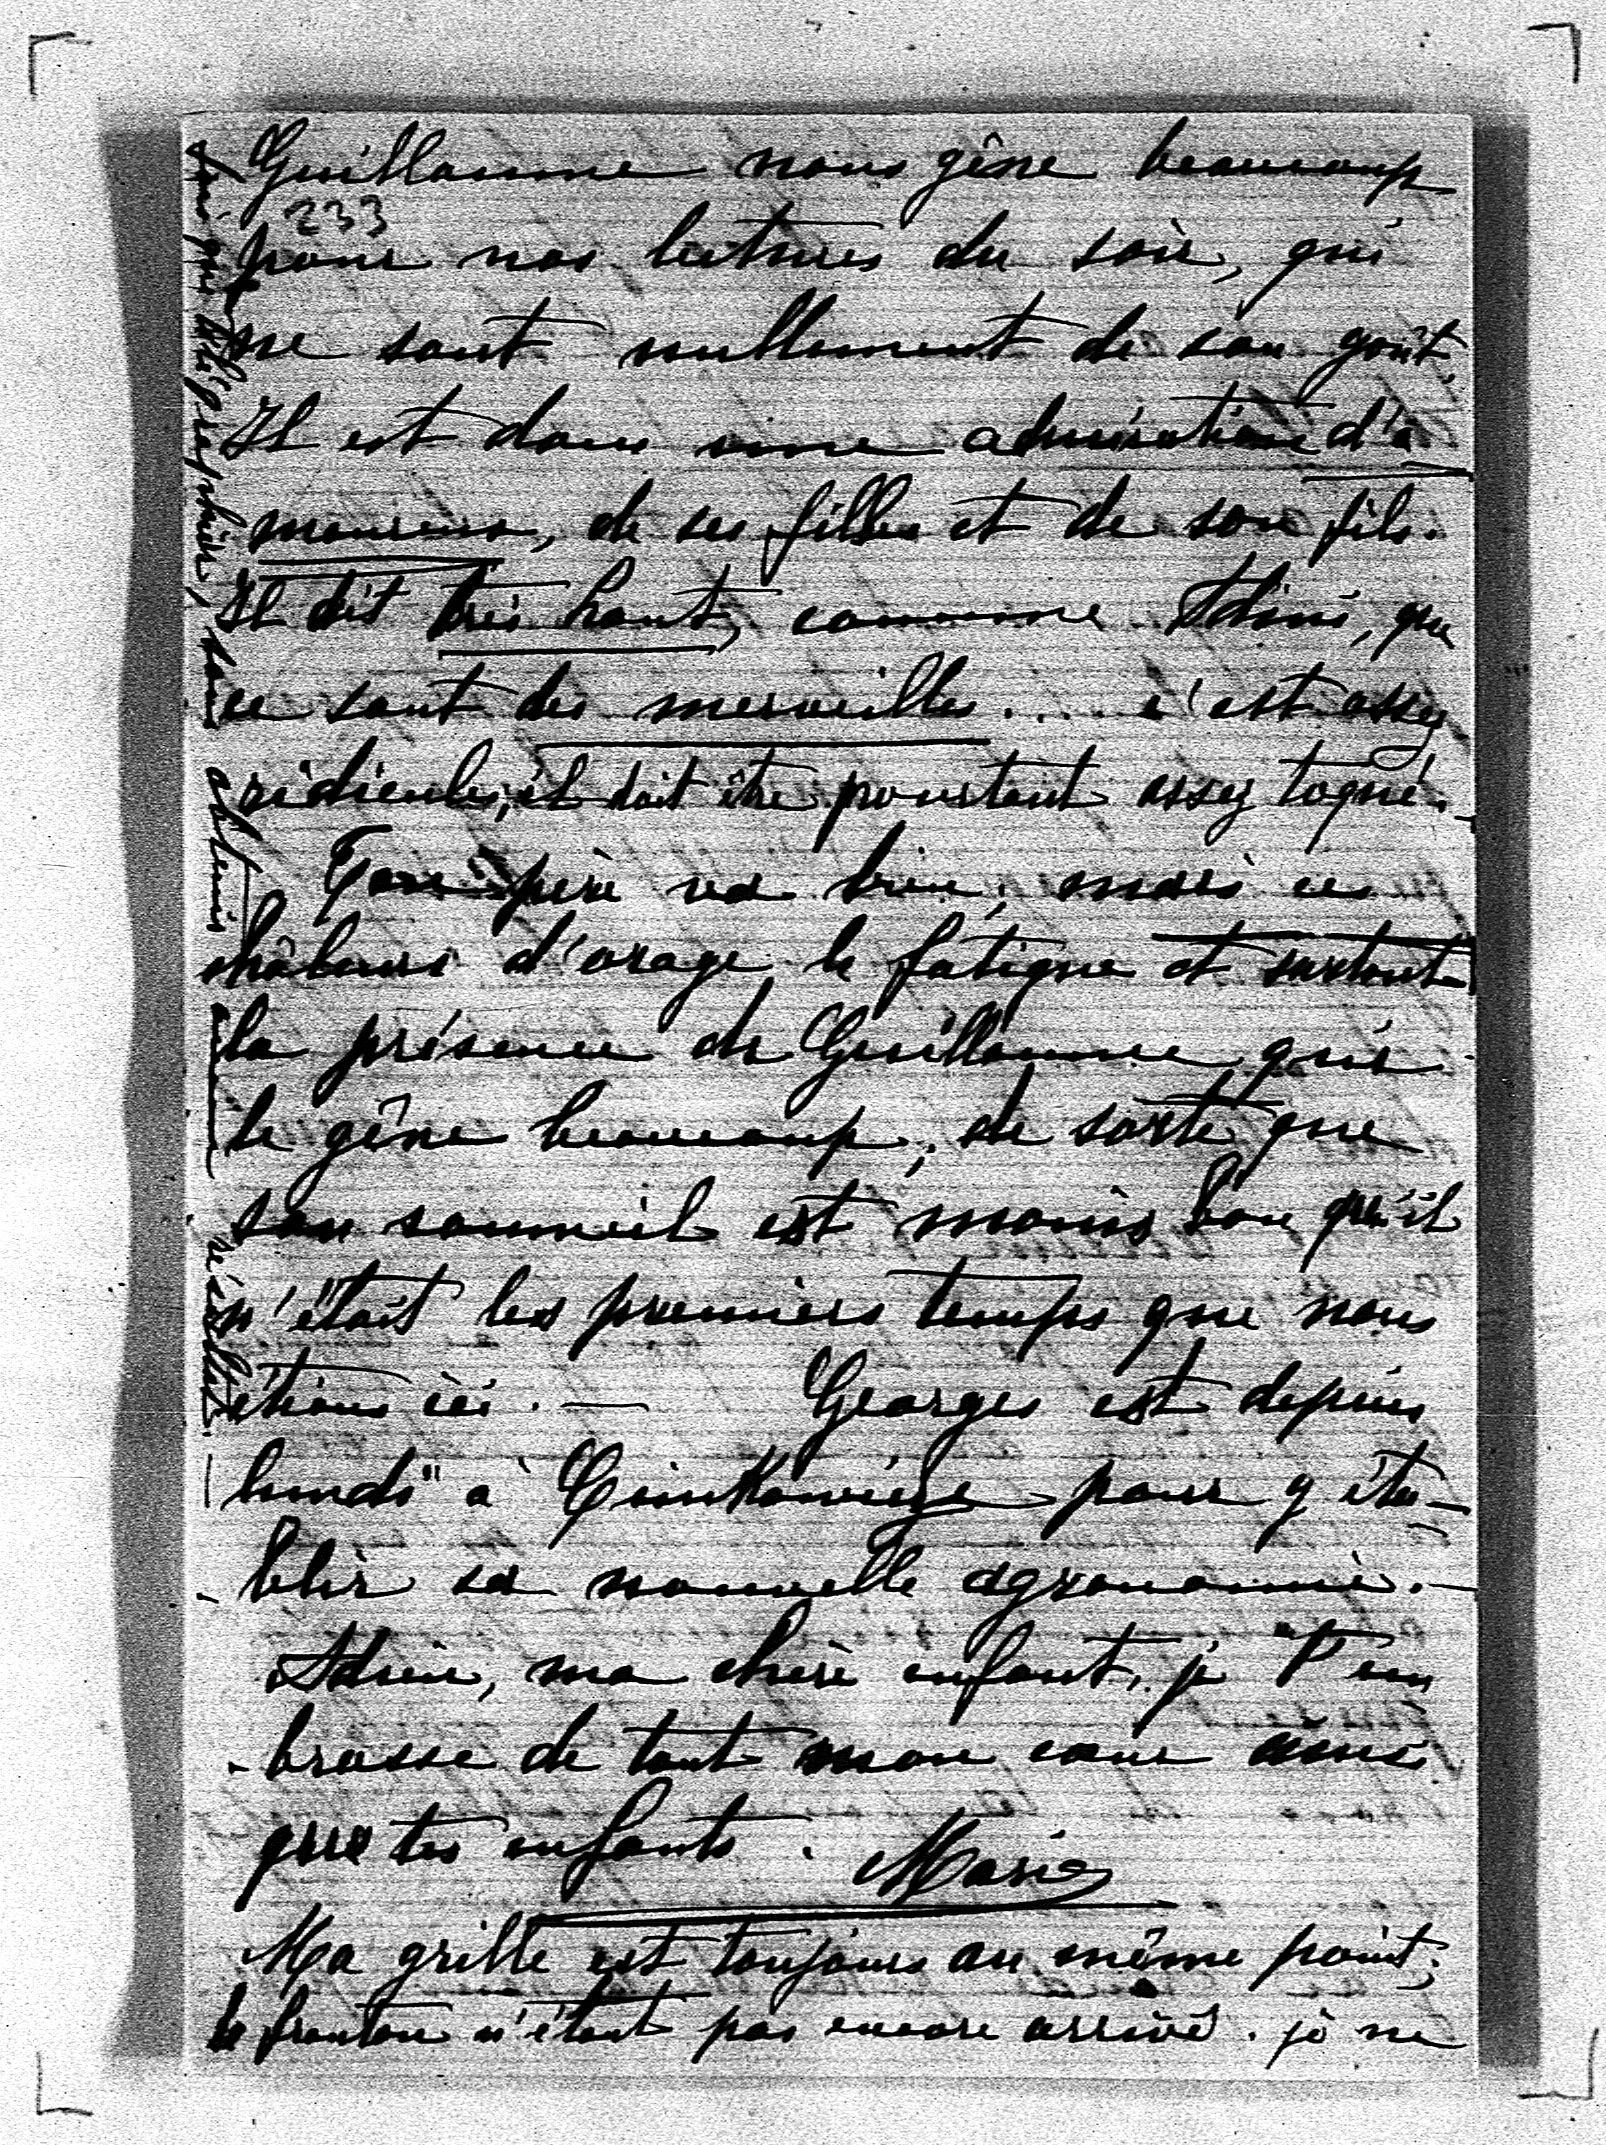 Guillaume nous gêne beaucoup
233
pour nos lectures du soir, qui
ne sont nullement de son goût.
Il est dans une admiration d'a
moureux, de ses filles et de son fils.
Il dit très haut, comme Adini, que
ce sont des merveilles... c'est assez
ridicule, il doit être pourtant assez toqué.
Ton père va bien, mais ces
chaleurs d'orage le fatigue et surtout
la présence de Guillaume qui
le gêne beaucoup, de sorte que
son sommeil est moins bon qu'il
n'était les premiers temps que nous
étions ici. — Georges est depuis
lundi à pour y éta-
blir sa nouvelle agronomie. —
Adieu, ma chère enfant, je t'em
brasse de tout mon cœur ainsi
que tes enfants. Marie
Ma grille est toujours au même point;
le fronton n'étant pas encore arrivé. je ne
fais que télégraphier, sans
obtenir aucun
résultat. —